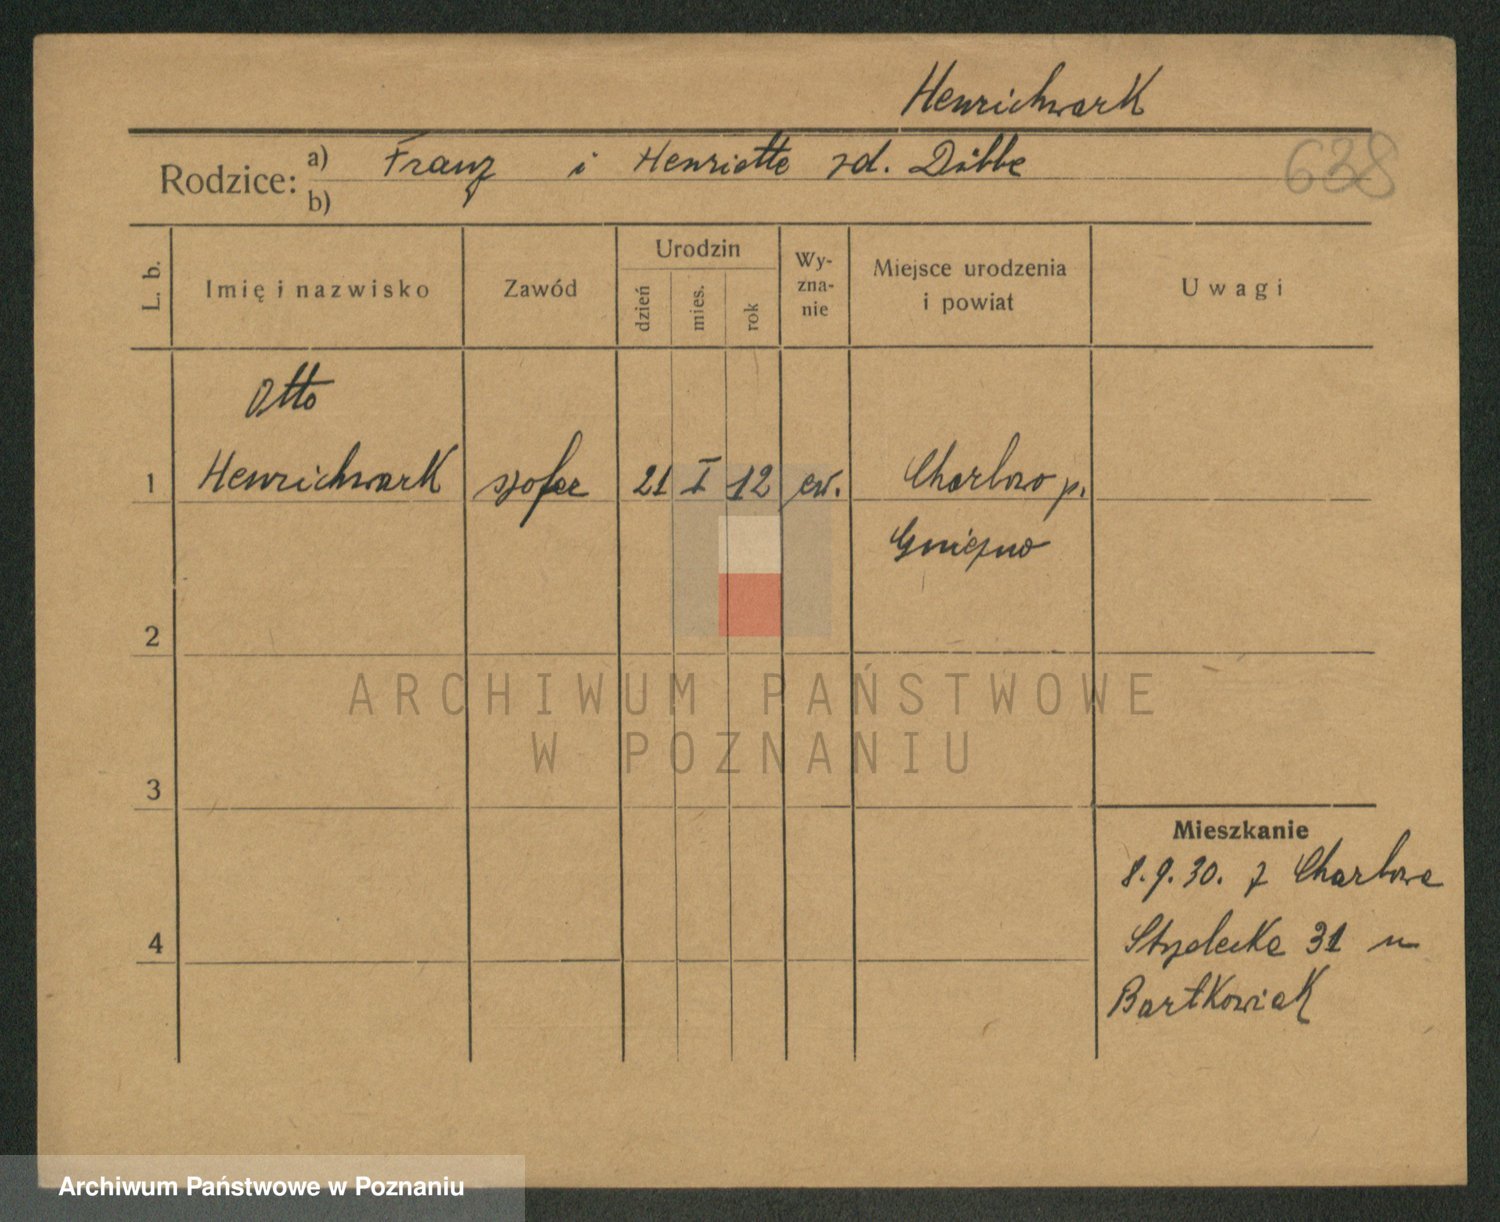 Henrichwark
Rodzice: a) Franz i Henriette zd. Dübbe
b)
638
L. b.
Imię i nazwisko
Zawód
Urodzin
dzień
mies.
rok
Wy-
zna-
nie
Miejsce urodzenia
i powiat
Uwagi
Otto
1 Henrichwark szofer 21 I 12 ew. Charbowo p.
Gniezno
2
3
4
Mieszkanie
8.9.30. z Charbowa
Strzelecka 31 u
Bartkowiak
ARCHIWUM PAŃSTWOWE
W POZNANIU
Archiwum Państwowe w Poznaniu